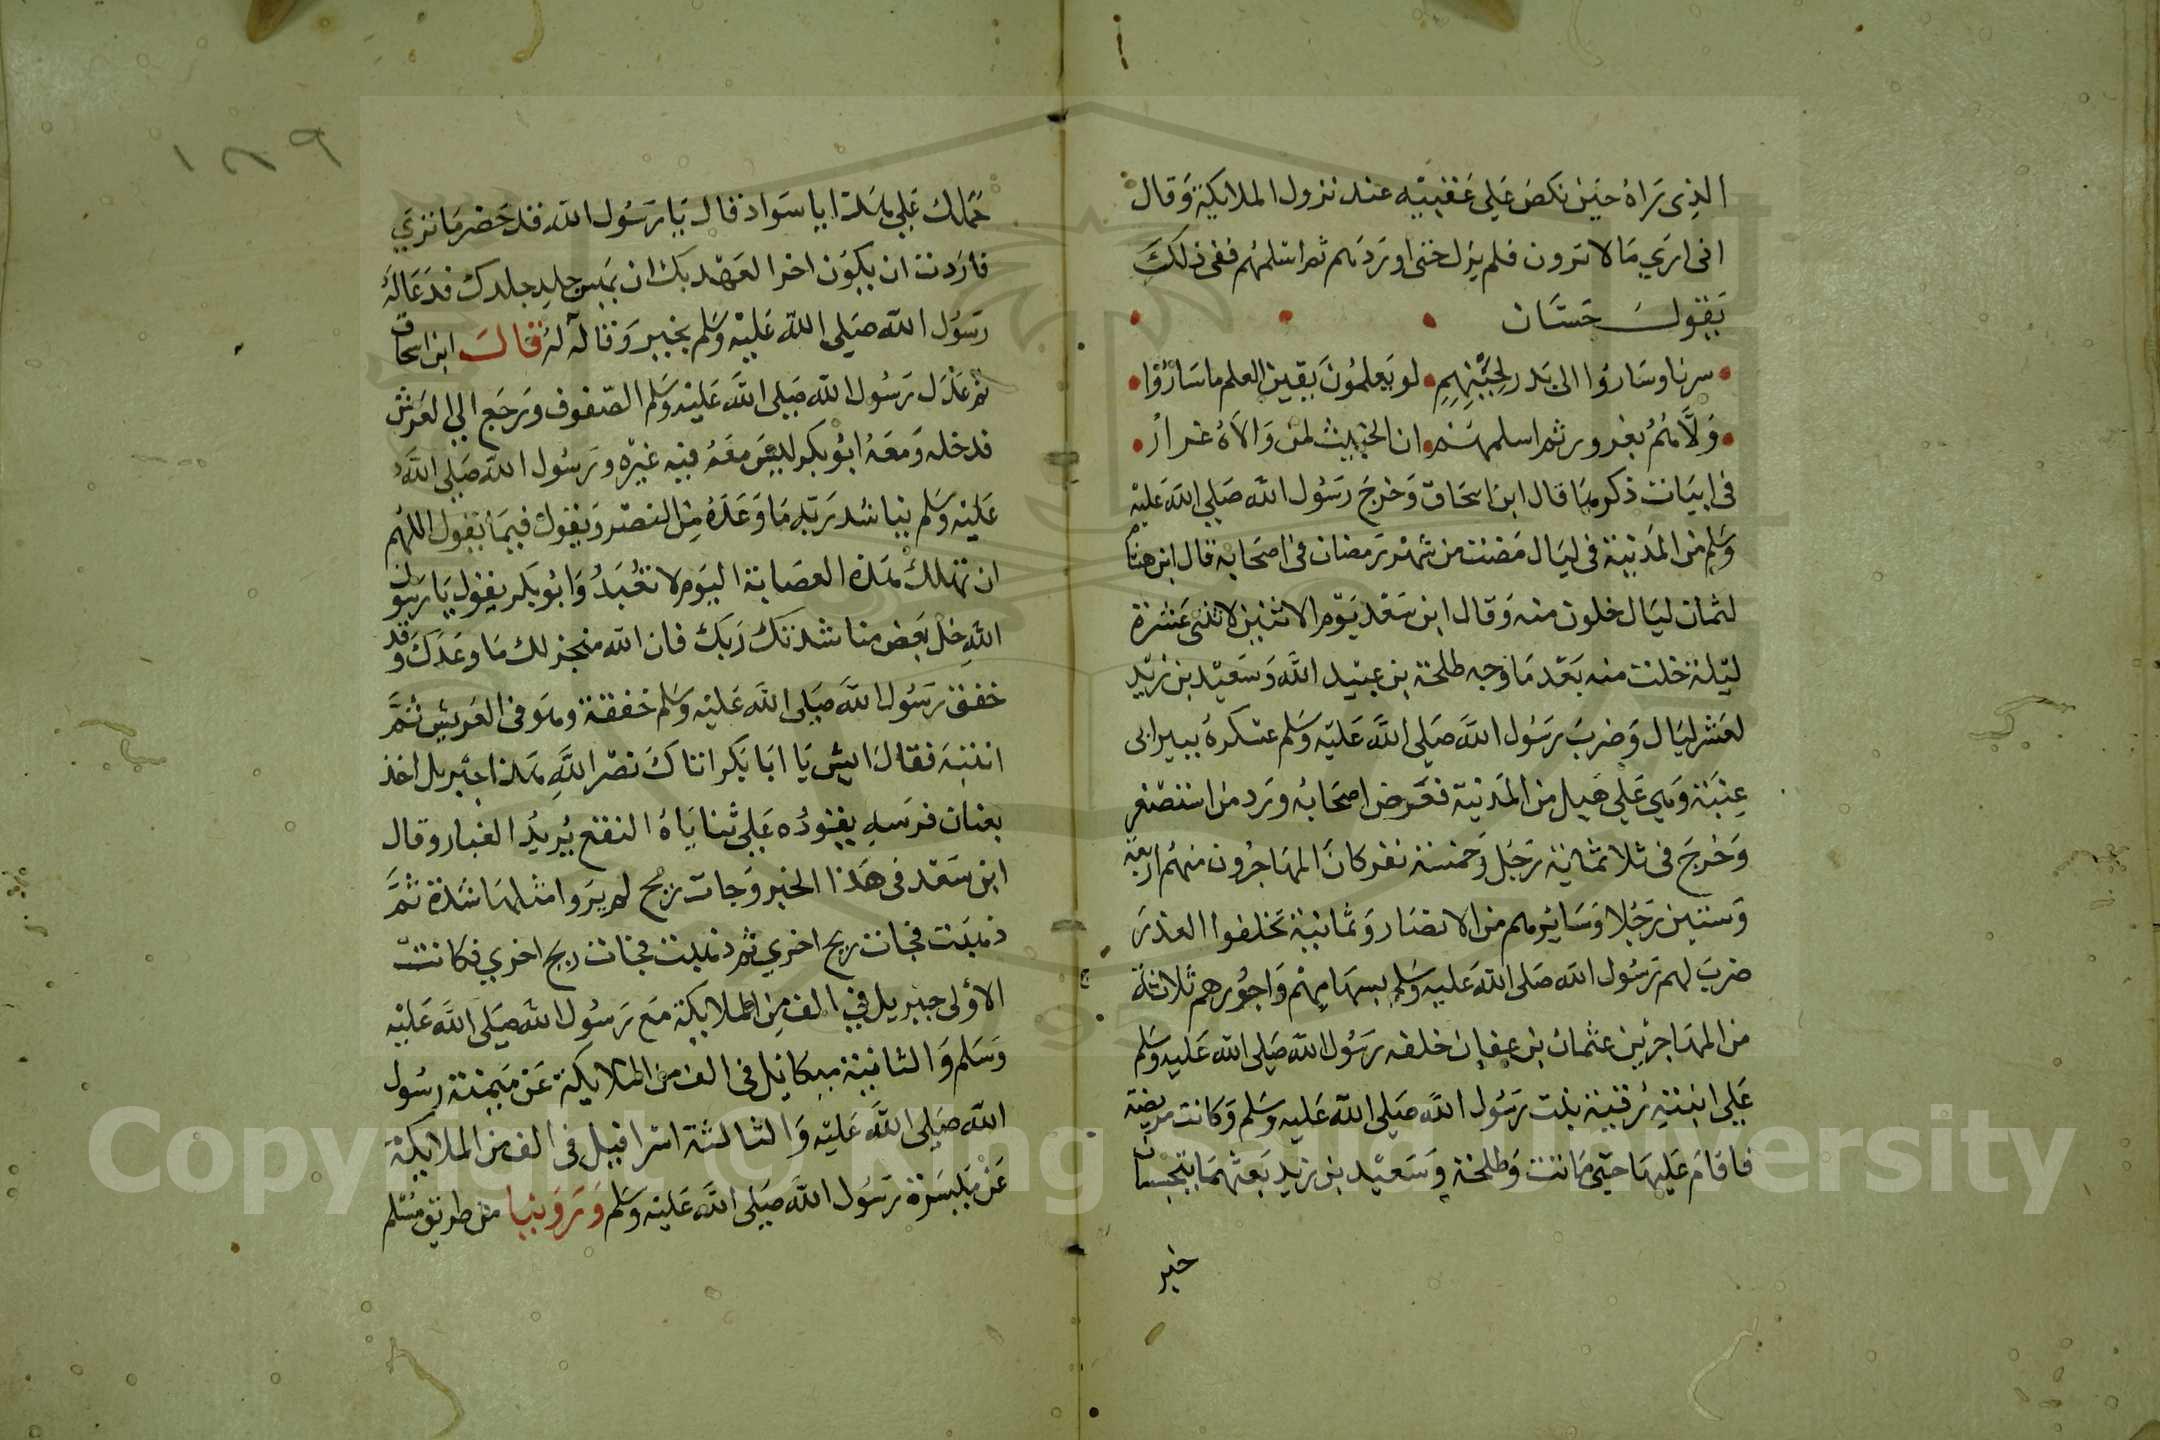 الذي تراه حين نكص علي عقبيه عند نزول الملايكة وقال
اني اري ما لا ترون فلم يزل حتى اوردهم ثم اسلمهم ففي ذلك
يقول حسان
سرنا وساروا الى بدر لحينهم لو يعلمون يقين العلم ما ساروا
ولاهم بغرور ثم اسلمهم ان الخبيث لمن والاه غرار
في ابيات ذكرها قال ابن اسحاق وخرج رسول الله صلي الله عليه
وسلم من المدينة في ليال مضت من شهر رمضان في اصحابه قال ابن هشام
لثمان ليال خلون منه وقال ابن سعد يوم الاثنين لاثنتى عشرة
ليلة خلت منه بعد ما وجه طلحة بن عبيد الله وسعيد بن زيد
لعشر ليال وضرب رسول الله صلي الله عليه وسلم عسكره ببير ابى
عنبة وهي علي ميل من المدينة فعرض اصحابه ورد من استصغر
وخرج في ثلاثماية رجل وخمسة نفر كان المهاجرون منهم اربعة
وستين رجلا وسايرهم من الانصار وثمانية تخلفوا لعذر
ضرب لهم رسول الله صلى الله عليه وسلم بسهامهم واجورهم ثلاثة
من المهاجرين عثمان بن عفان خلفه رسول الله صلى الله عليه وسلم
علي ابنته رقية بنت رسول الله صلى الله عليه وسلم وكانت مريضة
فاقام عليها حتى ماتت وطلحة وسعيد بن زيد بعثهما يتجسسان
خبر
١٨٩
حملك علي هذا يا سواد قال يا رسول الله قد حضر ما تري
فاردت ان يكون اخر العهد بك ان يمس جلدي جلدك فدعا له
رسول الله صلى الله عليه وسلم بخير وقاله له قال ابن اسحاق
ثم عدل رسول الله صلى الله عليه وسلم الصفوف ورجع الي العرش
فدخله ومعه ابو بكر ليس معه فيه غيره ورسول الله صلى الله
عليه وسلم يناشد ربه ما وعده من النصر ويقول فيما يقول اللهم
ان تهلك هذه العصابة اليوم لا تعبد وابو بكر يقول يا رسول
الله خل بعض مناشدتك ربك فان الله منجز لك ما وعدك وقد
خفق رسول الله صلى الله عليه وسلم خفقة وهو في العريش ثم
انتبه فقال ابشر يا ابا بكر اتاك نصر الله هذا جبريل اخذ
بعنان فرسه يقوده علي ثناياه النقع يريد الغبار وقال
ابن سعد في هذا الخبر وجات ريح لم يروا مثلها شدة ثم
ذهبت فجات ريح اخري ثم ذهبت فجات ريح اخري فكانت
الاولى جبريل في الف من الملايكة مع رسول الله صلى الله عليه
وسلم والثانية ميكائيل في الف من الملايكة عن ميمنة رسول
الله صلى الله عليه والثالثة اسرافيل في الف من الملايكة
عن ميسرة رسول الله صلى الله عليه وسلم وروينا من طريق مسلم
Copyright © King Saud University